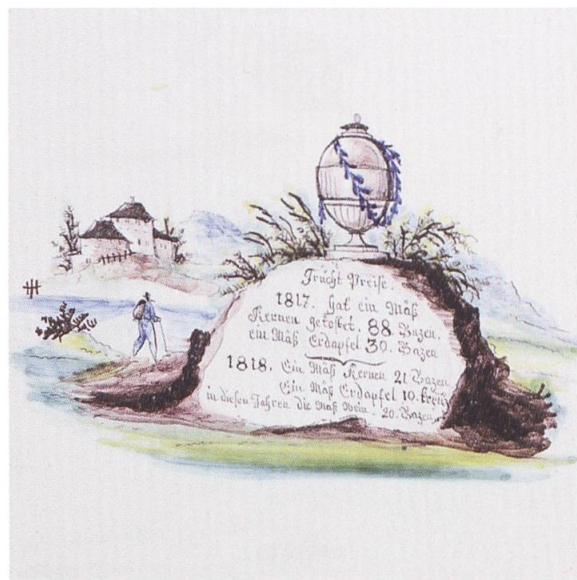 Frucht Preise.
1817. Hat ein Mäß
Kernen gekostet. 88 Bazen.
ein Mäß Erdäpfel 30. Bazen
1818. Ein Mäß Kernen 21 Bazen
Ein Mäß Erdapfel 10. Kreuz
in diesen Jahren die Maß Wein. 20. Bazen.